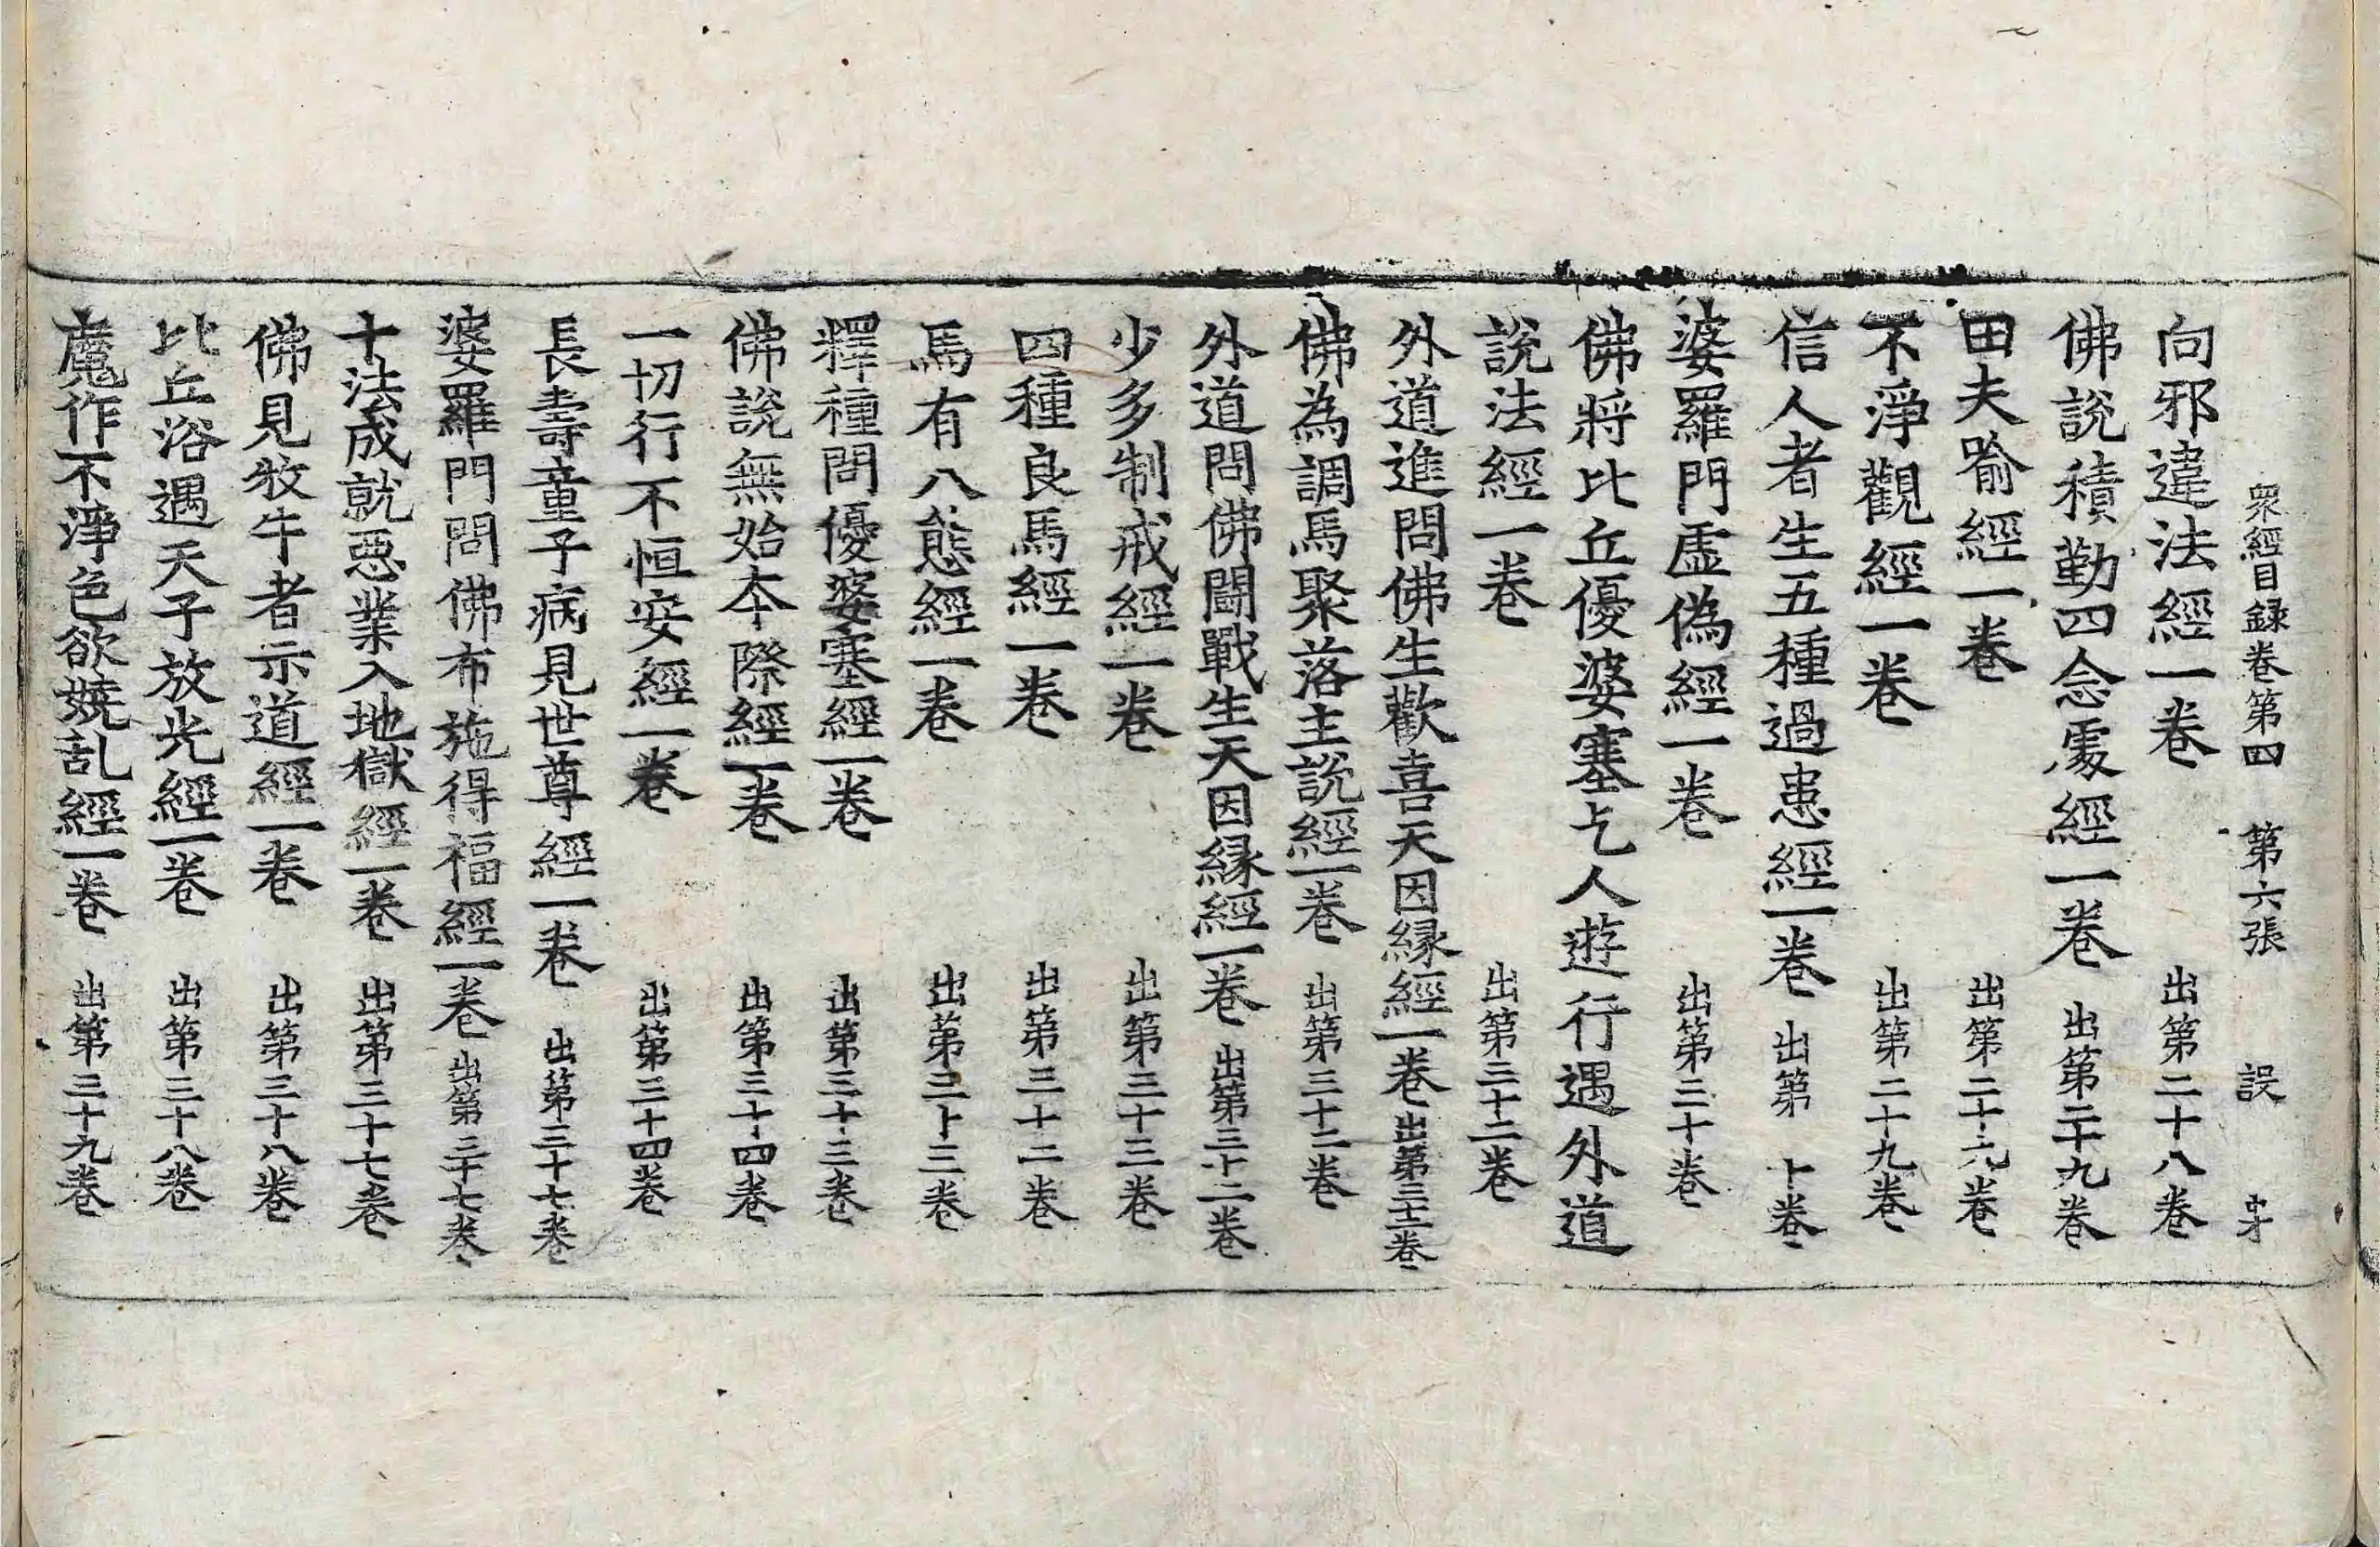 衆經目録卷第四 第六張 誤
向邪違法經一卷 出第二十八卷
佛說積勤四念處經一卷 出第二十九卷
田夫喻經一卷 出第二十九卷
不淨觀經一卷 出第二十九卷
信人者生五種過患經一卷 出第 十卷
婆羅門虛偽經一卷 出第三十卷
佛將比丘優婆塞乞人遊行遇外道
說法經一卷 出第三十二卷
外道進問佛生歡喜天因縁經一卷 出第三十二卷
佛為調馬聚落主說經一卷 出第三十二卷
外道問佛鬪戰生天因縁經一卷 出第三十二卷
少多制戒經一卷 出第三十三卷
四種良馬經一卷 出第三十二卷
馬有八態經一卷 出第三十三卷
釋種問優婆塞經一卷 出第三十三卷
佛說無始本際經一卷 出第三十四卷
一切行不恒安經一卷 出第三十四卷
長壽童子病見世尊經一卷 出第三十七卷
婆羅門問佛布施得福經一卷 出第三十七卷
十法成就惡業入地獄經一卷 出第三十七卷
佛見牧牛者示道經一卷 出第三十八卷
比丘浴遇天子放光經一卷 出第三十八卷
魔作不淨色欲嬈乱經一卷 出第三十九卷